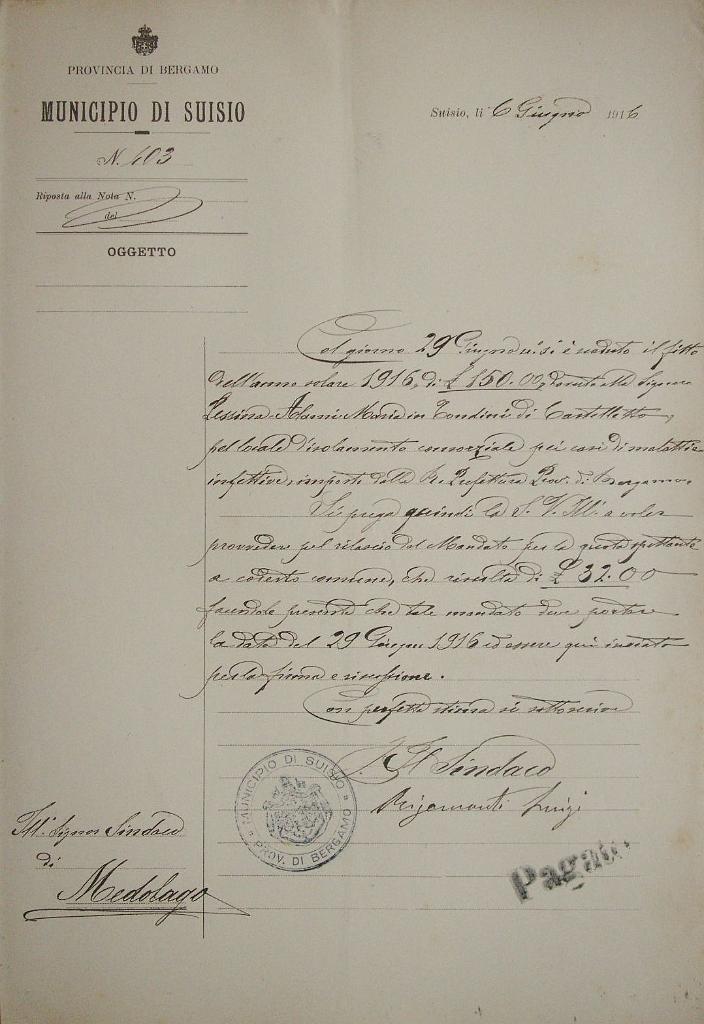 PROVINCIA DI BERGAMO
MUNICIPIO DI SUISIO
N. 403
Riposta alla Nota N.
del
OGGETTO
Suisio, li 6 Giugno 1916
Col giorno 29 Giugno si è scaduto il fitto
dell'anno solare 1916, di £ 150.00, dovuto alla Signora
Maria in Tondini di
pel locale d'isolamento consorziale pei casi di malattie
infettive, imposto dalla R. Prefettura Prov. di Bergamo.
Si prega quindi la S. V. Ill. a voler
provvedere pel rilascio del Mandato per la quota spettante
a codesto comune, che risulta di £ 32.00
facendole presente che tale mandato deve portare
la data del 29 Giugno 1916 ed essere qui inviato
per la firma e riscossione.
Con perfetta stima si sottoscrive
Il Sindaco
Rigamonti Luigi
MUNICIPIO DI SUISIO
PROV. DI BERGAMO
Pagato
Ill. Signor Sindaco
di
Medolago